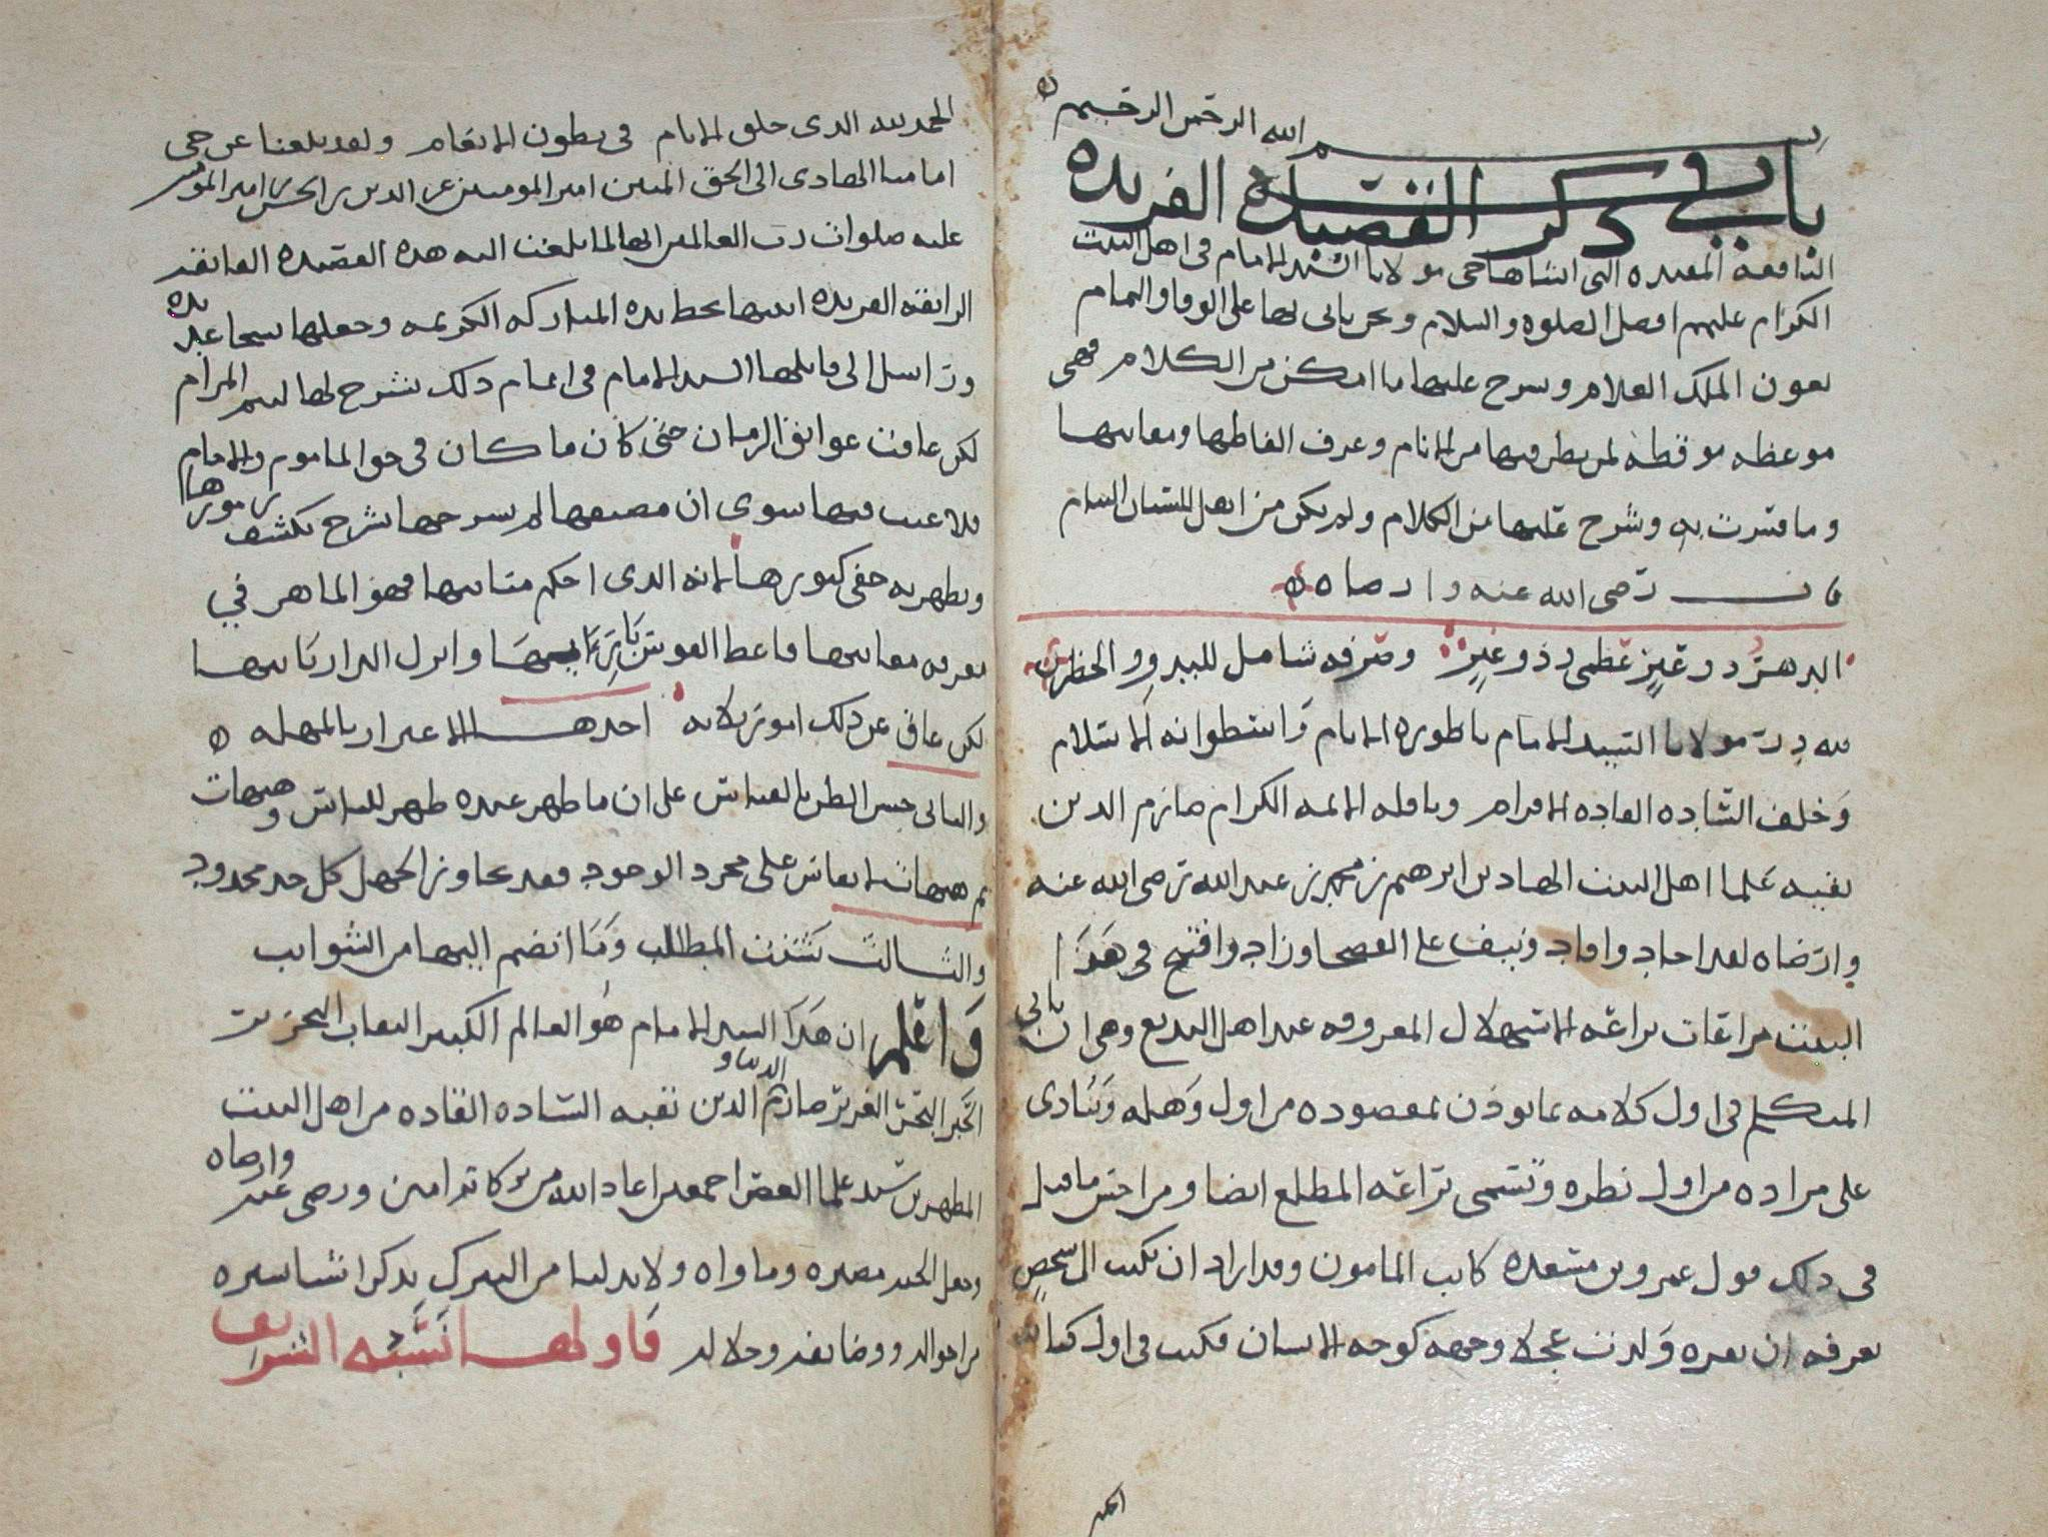 بسم الله الرحمن الرحيم
باب في ذكر القصيدة الفريدة
النافعه المفيده التي انشاها حي مولانا السيد الامام في اهل البيت
الكرام عليهم افضل الصلوه والسلام ونحن ناتي بها على الوفا والتمام
بعون الملك العلام ونشرح عليها ما امكن من الكلام فهي
موعظه موقظه لمن نظر فيها من الانام وعرف الفاظها ومعانيها
وما فسرت به وشرح عليها من الكلام ولم يكن من اهل
قال رضي الله عنه وارضاه
الدهر ذو عبر عظمى وذو غير وصرفه شامل للبدو والحضر
لله در مولانا السيد الامام باطوره الايام واسطوانه الاسلام
وخلف الساده القاده الاقرام وباقله الايمه الكرام صارم الدين
بقيه علما اهل البيت الهادين ابرهيم بن محمد بن عبد الله رضي الله عنه
وارضاه لقد اجاد وافاد ونيف على الفصحا وزاد وافتتح في هذا
البيت مراعات براعه الاستهلال المعروفه عند اهل البديع وهي ان ياتي
المتكلم في اول كلامه بما يوذن بمقصوده من اول وهله وينادى
على مراده من اول نظره وتسمى براعه المطلع ايضا ومن احسن ما قيل
في ذلك قول عمرو بن مسعده كاتب المامون وقد اراد ان يكتب الى شخص
يعرفه ان بقره ولدت عجلا وجهه كوجه الانسان فكتب في اول كتابه
الحمد
الحمد لله الذي خلق الانام في بطون الانعام ولقد بلغنا عن حي
امامنا الهادي الى الحق المبين امير المومنين عز الدين بن الحسن بن امير المومنين
عليه صلوات رب العالمين انها لما بلغت اليه هذه القصيده الفائقه
الرايقه الفريده اثبتها بخط يده المباركه الكريمه وجعلها
وراسل الى قايلها السيد الامام في اتمام ذلك بشرح لها ليتم المرام
لكن عاقت عوايق الزمان حتى كان ما كان في حق الماموم والامام
فلا عيب فيها سوى ان مصنفها لم يشرحها بشرح يكشف رموزها
ويظهر به خفي كنوزها لانه الذي احكم مثانيها فهو الماهر في
معرفه معانيها فاعط القوس باريها وانزل الدار بانيها
لكن عاق عن ذلك امور ثلاثه احدها الاغترار بالمهله
والثاني حسن الظن بالناس على ان ما ظهر عنده ظهر للناس وهيهات
ثم هيهات لا يقاس على مجرد الوجود فقد تجاوز الجهل كل حد محدود
والثالث تشتت المطالب وما انضم اليها من الشوايب
واعلم ان هذا السيد الامام هو العالم الكبير النقاب النحرير
الحبر البحر الغزير صارم الدنيا والدين بقيه الساده القاده من اهل البيت
المطهرين سيد علما العصر اجمعين اعاد الله من بركاته امين ورضي عنه وارضاه
وجعل الجنه مصيره وماواه ولا بد لنا من التبرك بذكر اشيا يسيره
من احواله ووظايفه وخلاله فاولها نسبه الشريف